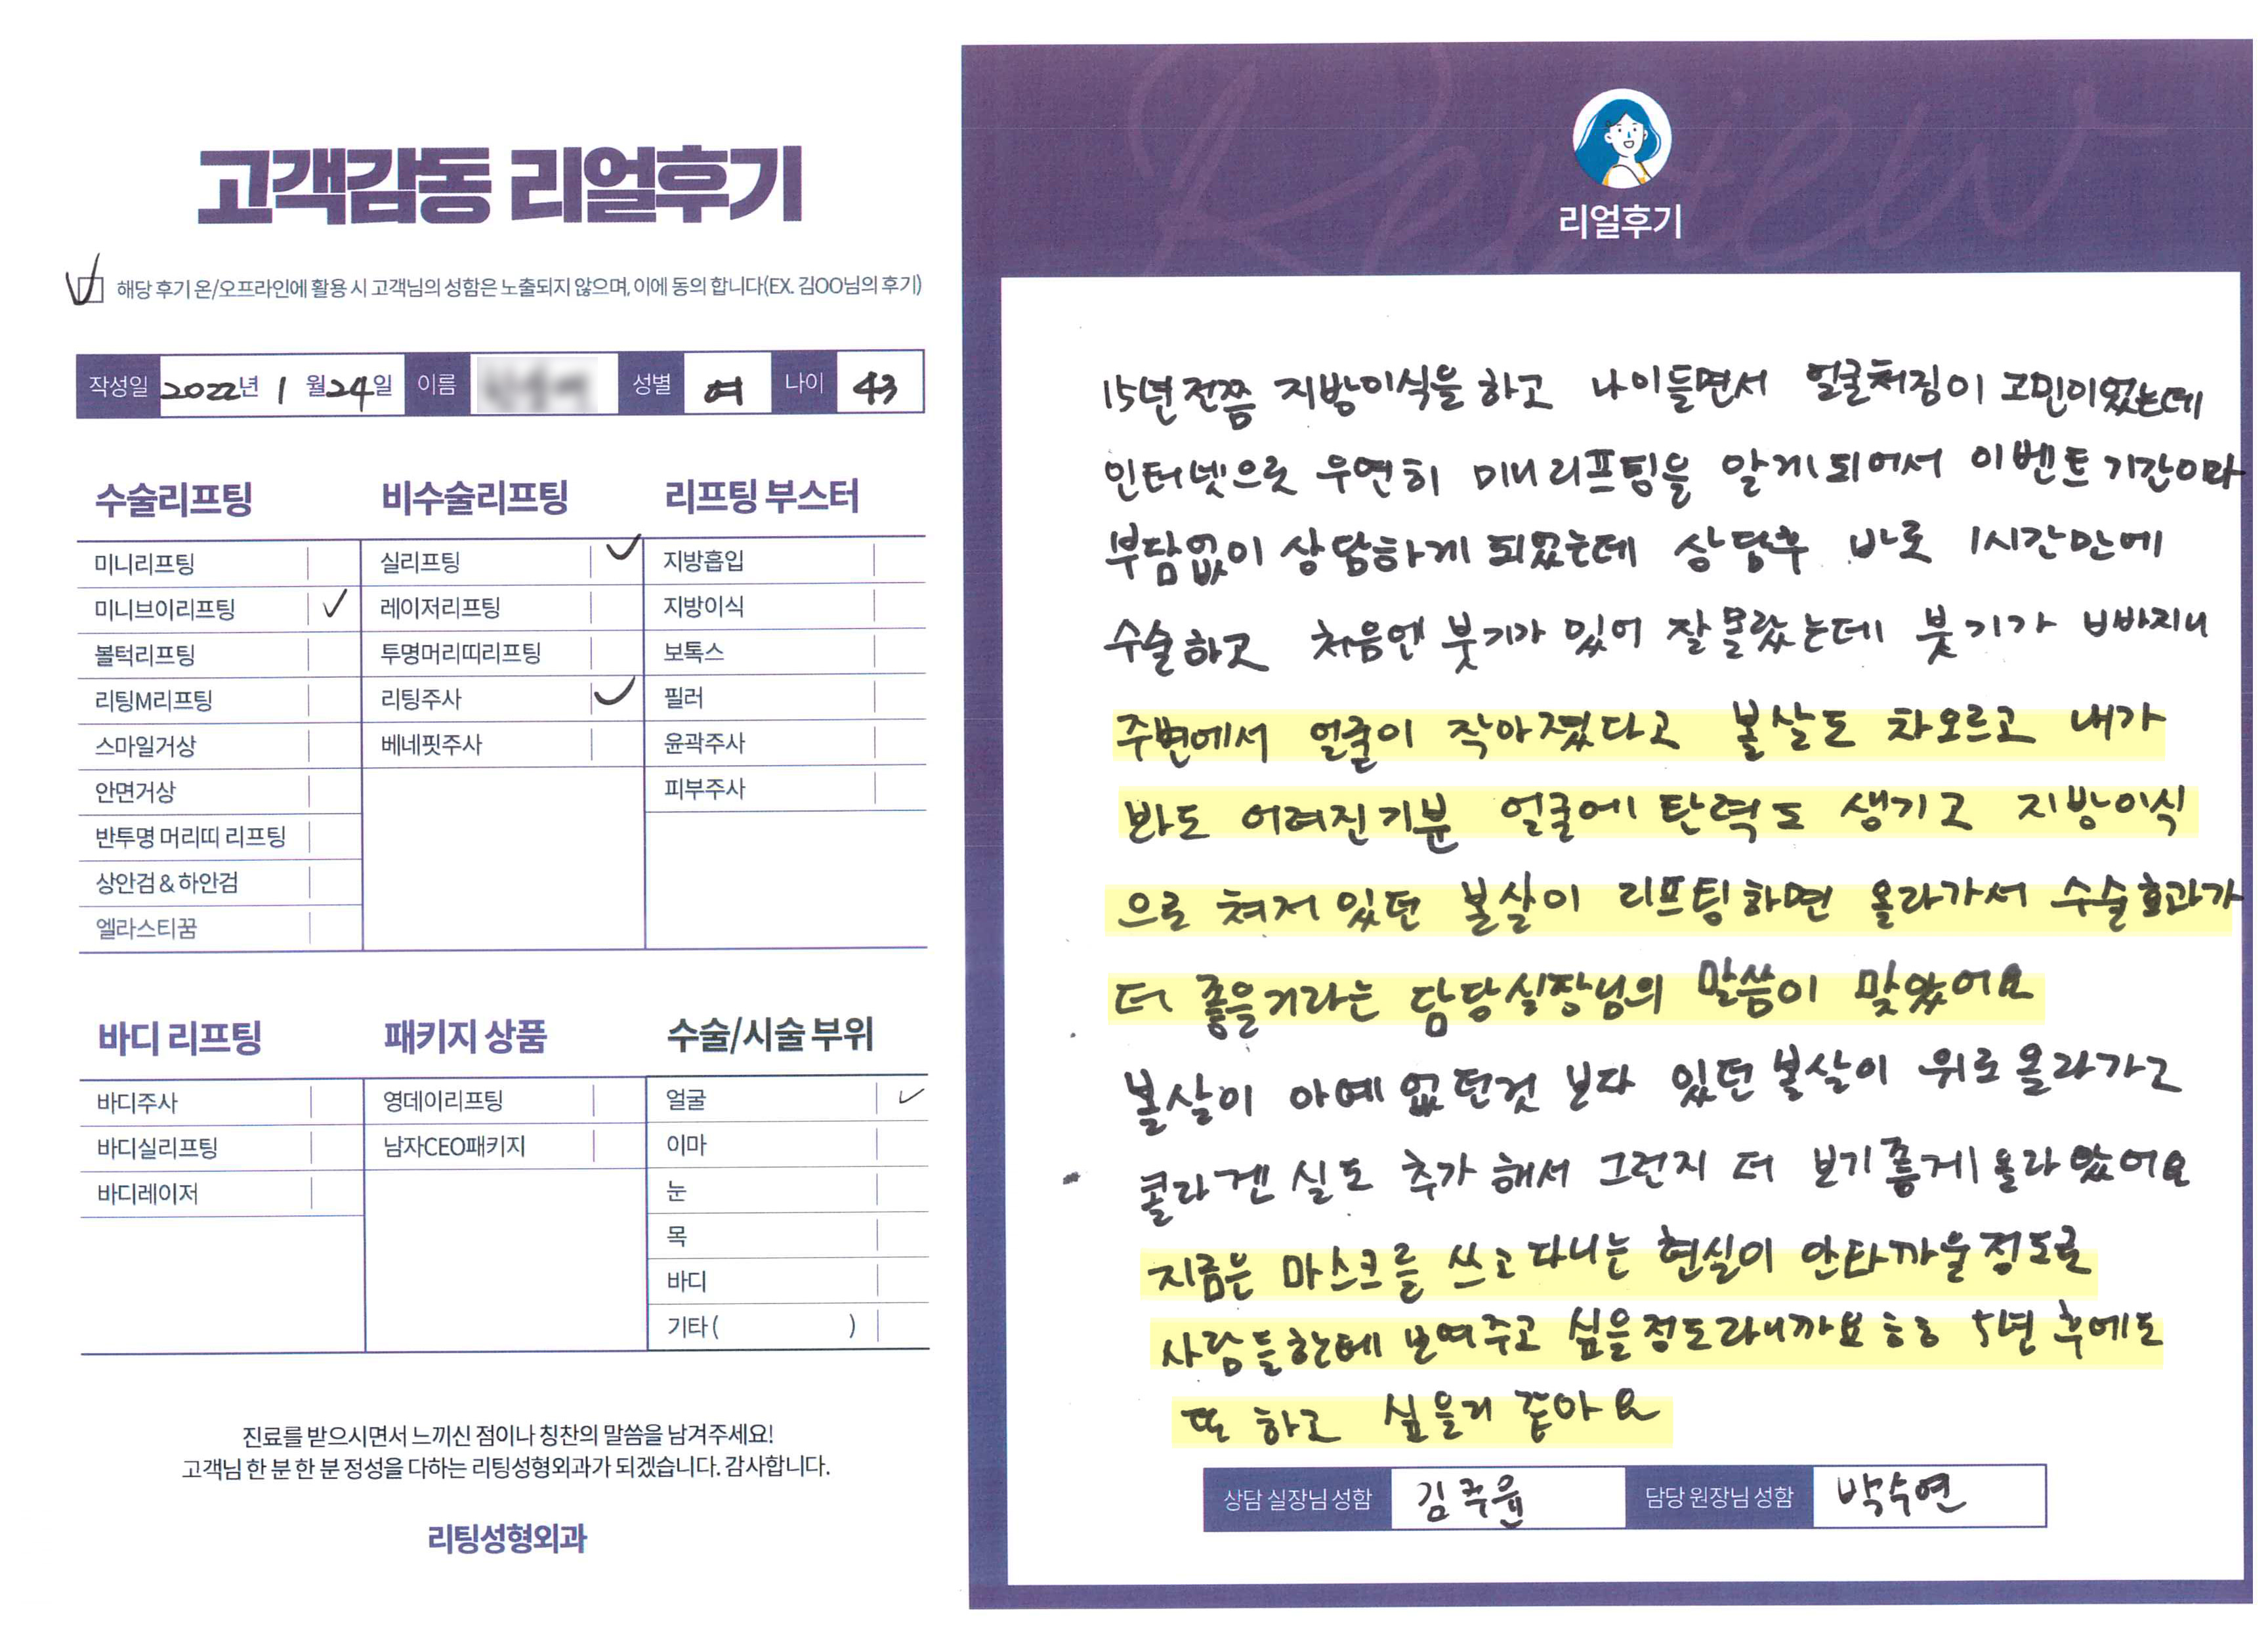 고객감동 리얼후기
해당 후기 온/오프라인에 활용 시 고객님의 성함은 노출되지 않으며, 이에 동의 합니다(EX. 김OO님의 후기)
작성일 2022년 1월 24일 이름 성별 여 나이 43
수술리프팅 비수술리프팅 리프팅 부스터
미니리프팅 실리프팅 지방흡입
미니브이리프팅 레이저리프팅 지방이식
볼턱리프팅 투명머리띠리프팅 보톡스
리팅M리프팅 리팅주사 필러
스마일거상 베네핏주사 윤곽주사
안면거상 피부주사
반투명 머리띠 리프팅
상안검 & 하안검
엘라스티꿈
바디 리프팅 패키지 상품 수술/시술 부위
바디주사 영데이리프팅 얼굴
바디실리프팅 남자CEO패키지 이마
바디레이저 눈
목
바디
기타 ( )
진료를 받으시면서 느끼신 점이나 칭찬의 말씀을 남겨주세요!
고객님 한 분 한 분 정성을 다하는 리팅성형외과가 되겠습니다. 감사합니다.
리팅성형외과
Review
리얼후기
15년전쯤 지방이식을 하고 나이들면서 얼굴처짐이 고민이었는데
인터넷으로 우연히 미니리프팅을 알게되어서 이벤트 기간이라
부담없이 상담하게 되었는데 상담후 바로 1시간만에
수술하고 처음엔 붓기가 있어 잘몰랐는데 붓기가 빠지니
주변에서 얼굴이 작아졌다고 볼살도 차오르고 내가
봐도 어려진기분 얼굴에 탄력도 생기고 지방이식
으로 쳐저 있던 볼살이 리프팅하면 올라가서 수술효과가
더 좋을거라는 담당실장님의 말씀이 맞았어요
볼살이 아예 없던것 보다 있던 볼살이 위로 올라가고
콜라겐 실도 추가 해서 그런지 더 보기좋게 올라 왔어요
지금은 마스크를 쓰고 다니는 현실이 안타까울정도로
사람들한테 보여주고 싶을정도라니까요 ㅎㅎ 5년 후에도
또 하고 싶을거 같아요
상담 실장님 성함 김주윤 담당 원장님 성함 박수연